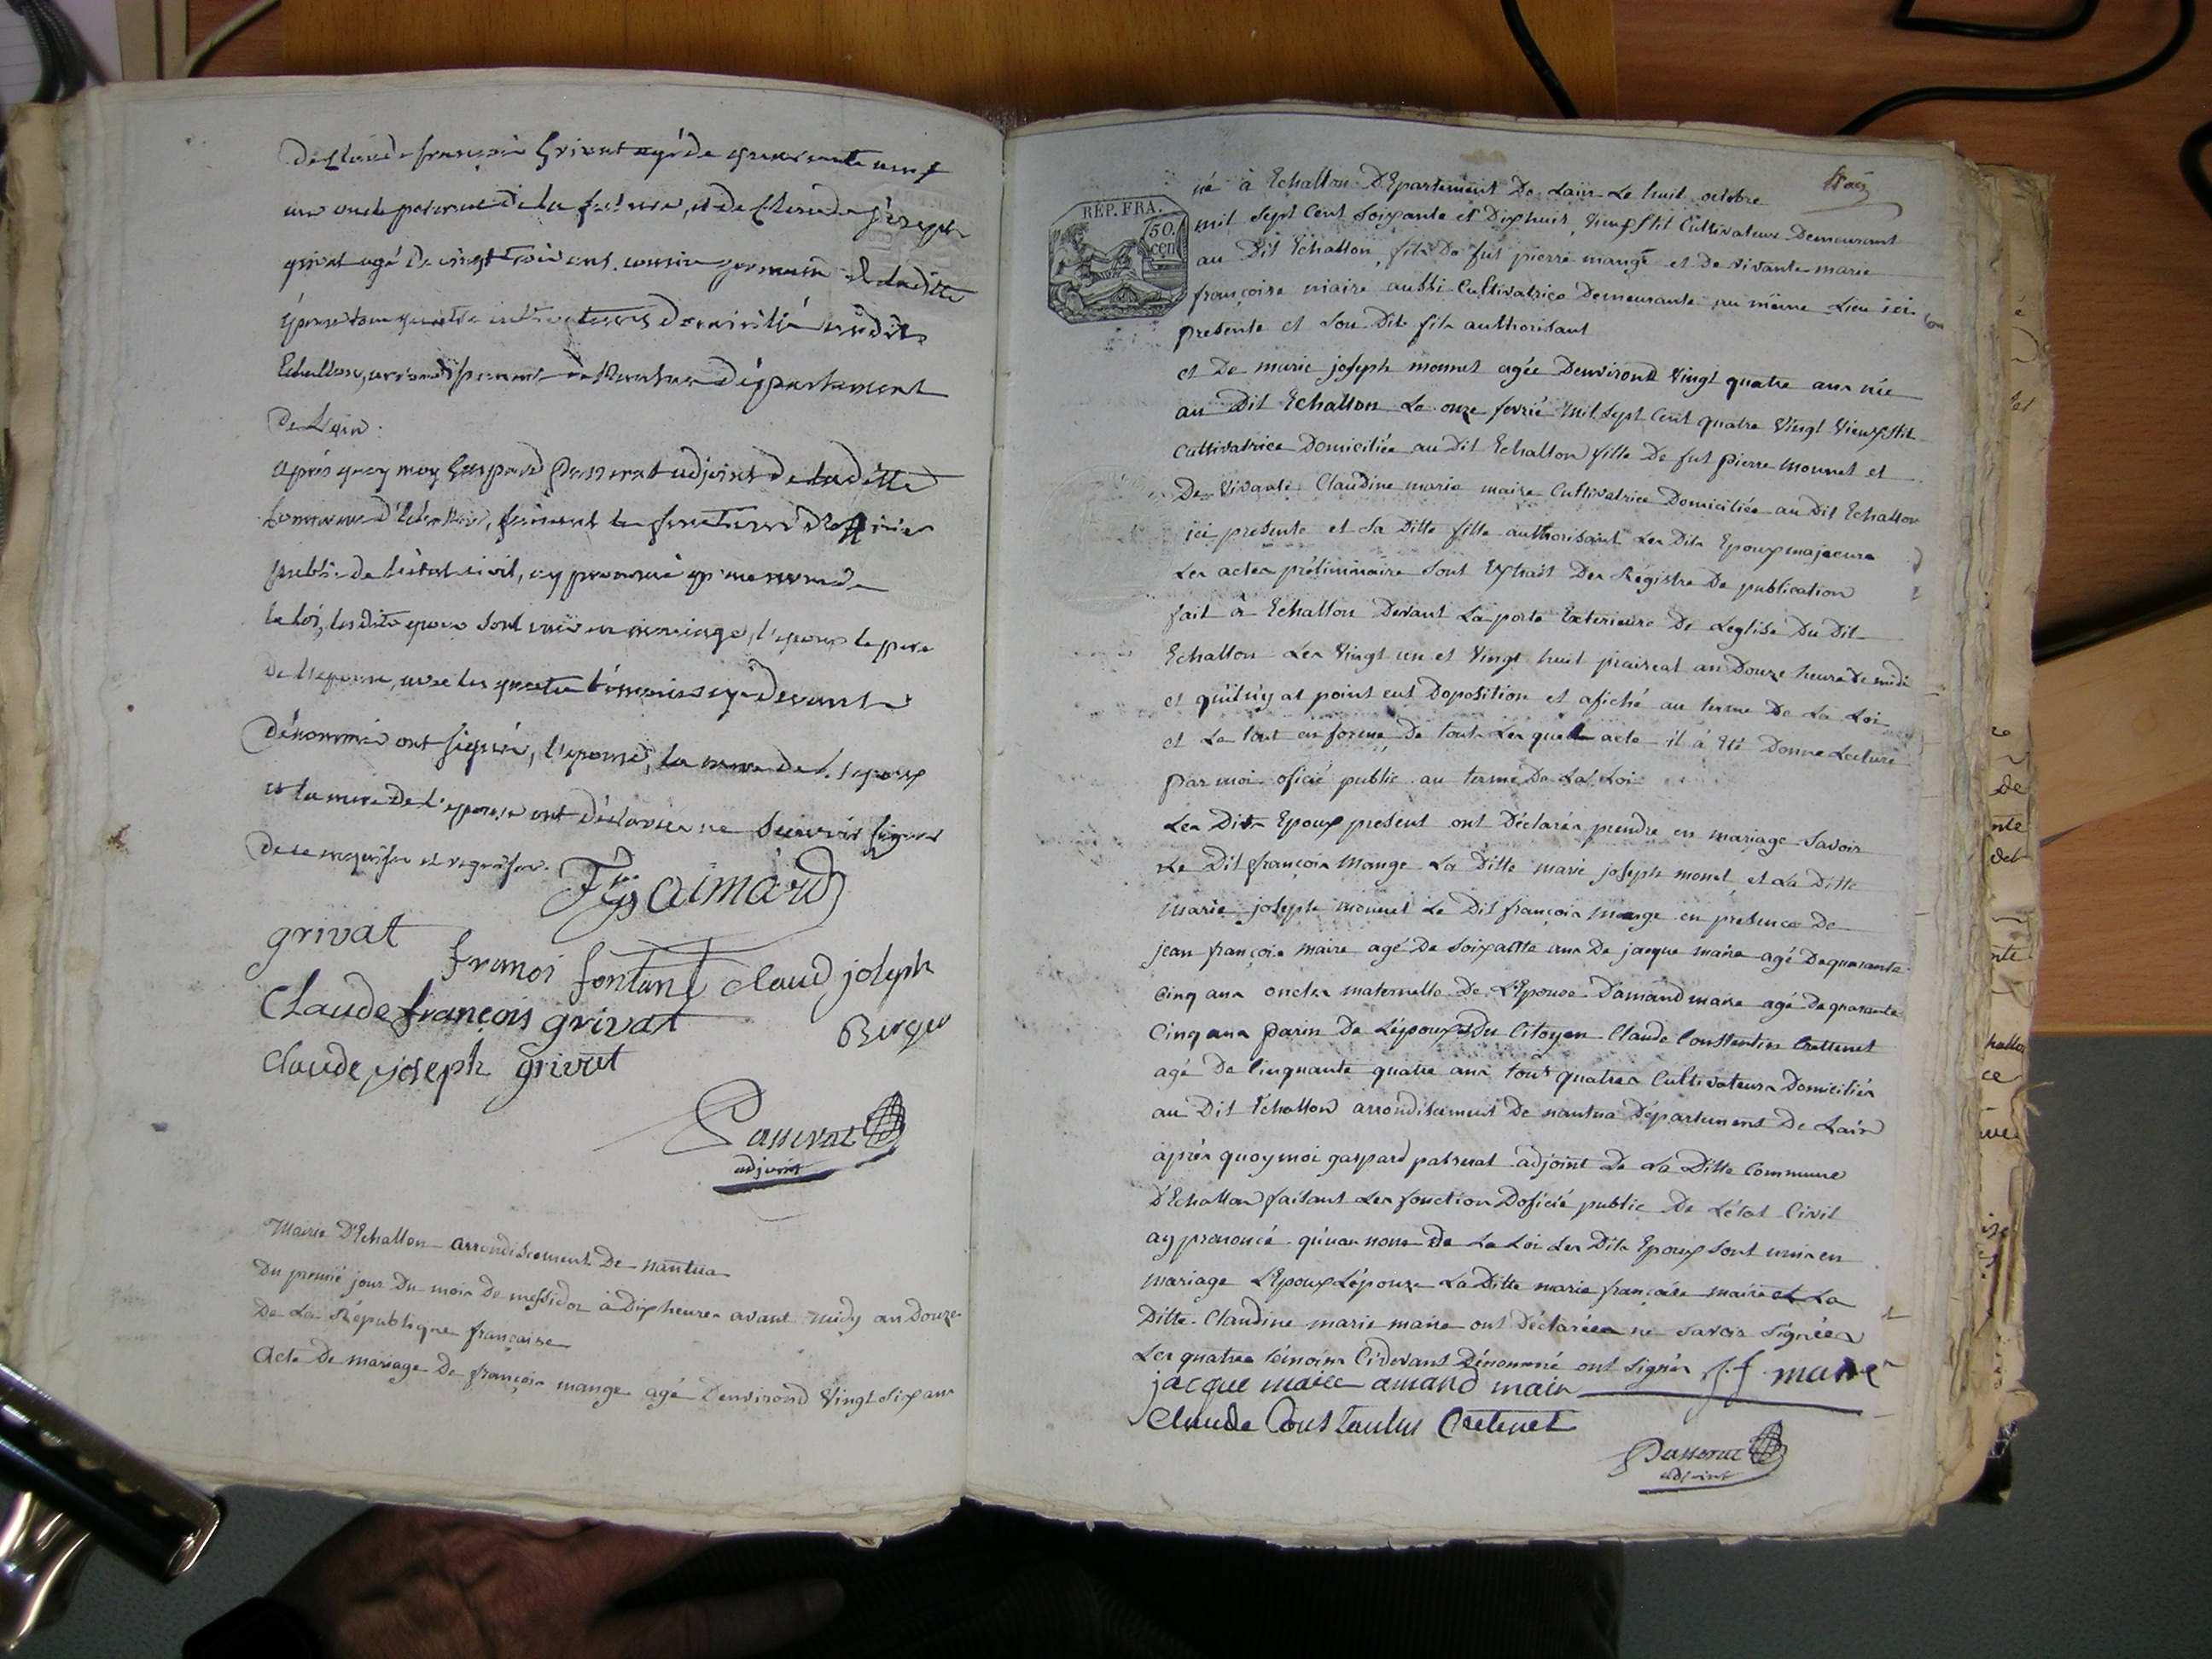 De Claude françois Grivat agé de quarante neuf
ans oncle paternel de la future, et de Claude joseph
grivat agé de vingt trois ans cousin germain de laditte
épouse tous quatre cultivateurs domicilié audit
Echallon, arrondissement de Nantua département
De Lain.
après quoy moy Gaspard Passerat adjoint de laditte
commune d'Echallon, faisant les fonctions d'officier
public de l'état civil, ay prononcé qu'au nom de
la loi, les dits epoux sont unis en mariage, l'epoux le pere
de l'epouse, avec les quatre témoins cy devant
dénommé ont signés, l'epouse, la mere de l'epoux
et la mere de l'epouse ont déclarées ne savoir signer
de ce enquises et requises.
aimard
grivat
franoi fontane claud joseph
Claude françois grivat
Berger
Claude joseph grivat
Passerat
adjoint
Mairie D'Echallon arrondissement De nantua
Du premié jour Du mois De messidor à Dix heures avant midy an Douze
De La République française
Acte De mariage De françois mange agé Denvirond Vingt Six ans
RÉP. FRA.
50.
cen
né à Echallon Département De Lain Le huit octobre
mil Sept Cent Soixante et Dixhuit, Vieux Stil Cultivateur Demeurant
au Dit Echallon, fils De fut pierre mange et De vivante marie
françoise maire aussi Cultivatrice Demeurante au même Lieu ici
presente et Son Dit fils authorisant
et De marie joseph monnet agée Denvirond Vingt quatre ans née
au Dit Echallon Le onze fevrié Mil Sept Cent quatre Vingt Vieux Stil
Cultivatrice Domiciliée au Dit Echallon fille De fut Pierre Monnet et
De Vivante Claudine marie maire Cultivatrice Domiciliée au Dit Echallon
ici presente et Sa Ditte fille authorisant Les Dits Epoux majeure
Les actes préliminaire Sont Extrait Des Régistre De publication
fait à Echallon Devant La porte Exterieure De Leglise Du Dit
Echallon Les Vingt un et Vingt huit prairéal an Douze heure De midi
et quil ny at point eut Doposition et afiché au terme De La Loi
et Le tout en forme De touts Les quell acte il à Eté Donné Lecture
Par moi oficié public au terme De La Loi
Les Dits Epoux present ont Déclarés prendre en mariage Savoir
Le Dit françois Mange La Ditte marie joseph monet et La Ditte
Marie joseph monnet Le Dit françois Mange en presence De
jean françois maire agé De Soixante ans De jacque maire agé De quarante
Cinq ans oncles maternelle De L'Epouse Damand maire agé De quarante
Cinq ans parin De Lépoux et Du Citoyen Claude Constantin Crettenet
agé De Cinquante quatre ans tout quatres Cultivateurs Domiciliés
au Dit Echallon arrondisement De nantua Département De Lain
après quoy moi gaspard paserat adjoint De La Ditte Commune
D'Echallon faisant Les fonction Doficié public De Létat Civil
ay prononcé qu'uau nom De La Loi Les Dits Epoux Sont unis en
mariage L'Epoux Lépouse La Ditte marie françoise maire et La
Ditte Claudine marie maire ont Déclarées ne Savoir Signées
Les quatres témoins Cidevant Dénommé ont Signés j. f. maire
jacque maire amand maire
Claude Constantin Cretenet
Passerat
adjoint